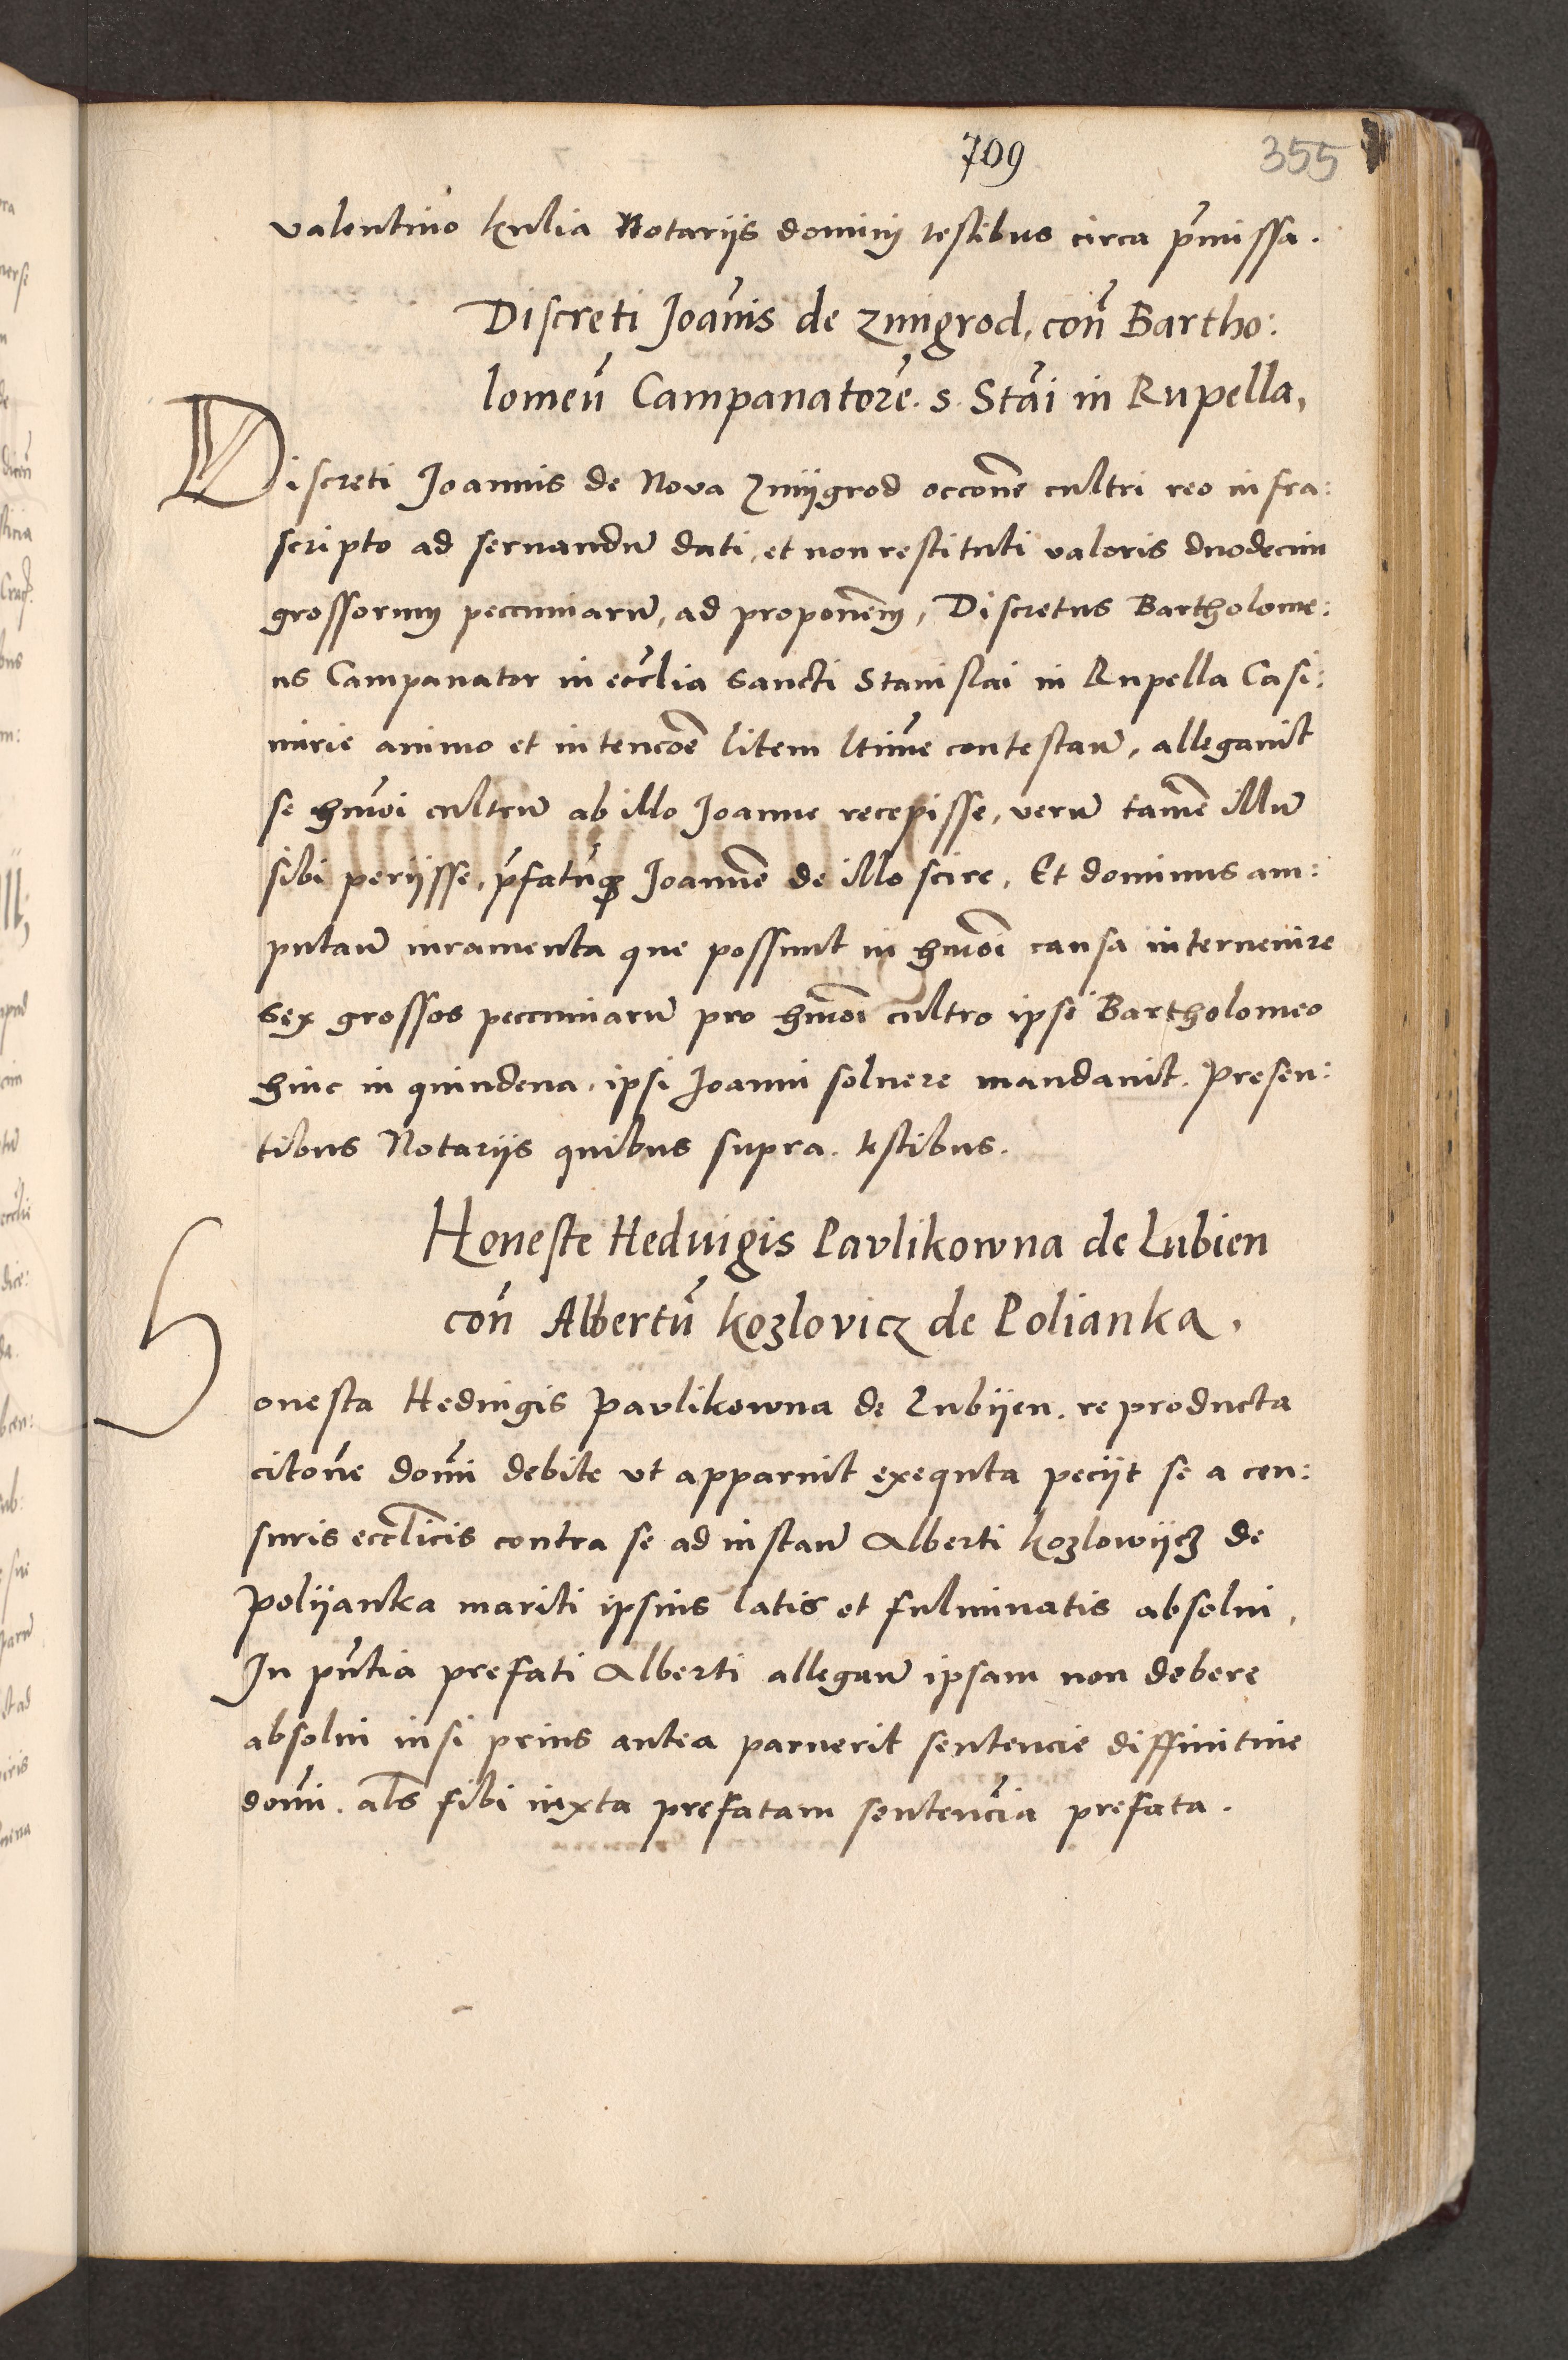 709 355
valentino kulia Notarijs dominj testibus circa p̄missa.
Discreti Joan̄is de zmigrod, con̄ Bartho:
lomeū Campanatorē. s. Stāi in Rupella,
Discreti Joannis de Nova Zmijgrod occōne cultri reo infra:
scripto ad seruandū dati, et non restituti valoris duodecim
grossorum pecuniarū, ad proponēm, Discretus Bartholome:
us Campanator in eccl̄ia sancti Stanislai in Rupella Casi:
mirie animo et intencōe litem lt̄ime contestan̄, allegauit
se hm̄oi cultrū ab illo Joanne recepisse, verū tamē illū
sibi perijsse, p̄fatūq₃ Joannē de illo scire, Et dominus am:
putan̄ iuramenta que possunt in hm̄oi causa interuenire
sex grossos pecuniarū pro hm̄oi cultro ipsi Bartholomeo
hinc in quindena, ipsi Joanni soluere mandauit. Presen:
tibus Notarijs quibus supra. testibus.
Honeste Heduigis Pavlikowna de Lubien
con̄ Albertū kozlovicz de Polianka,
Honesta Heduigis Pavlikowna de Lubijen. reproducta
citōne dom̄i debite vt apparuit exequta pecijt se a cen:
suris eccl̄icis contra se ad instan̄ Alberti kozlowijcz de
Polijanka mariti ipsius latis et fulminatis absolui,
In pn̄tia prefati Alberti allegan̄ ipsam non debere
absolui nisi prius antea paruerit sentencie diffinitiue
dom̄i. als̄ sibi iuxta prefatam sentenciā prefata.